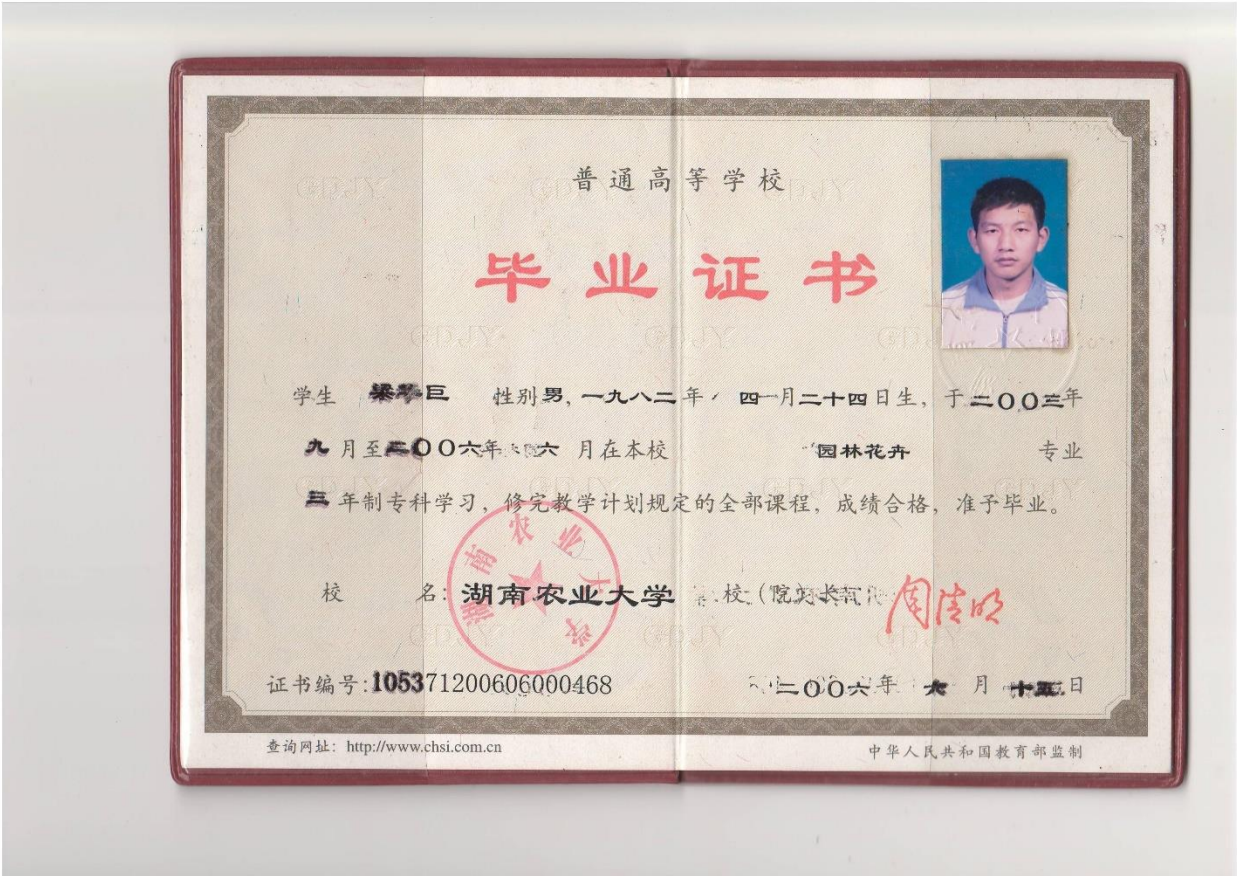 普通高等学校
毕业证书
学生 梁 巨 性别 男，一九八二年 四 月二十四日生，于二〇〇三年
九月至二〇〇六年 六 月在本校 园林花卉 专业
三年制专科学习，修完教学计划规定的全部课程，成绩合格，准予毕业。
校 名：湖南农业大学 校（院）长： 周清明
湖南农业大学
证书编号:105371200606000468 二〇〇六年 六 月 十五 日
查询网址：http://www.chsi.com.cn 中华人民共和国教育部监制